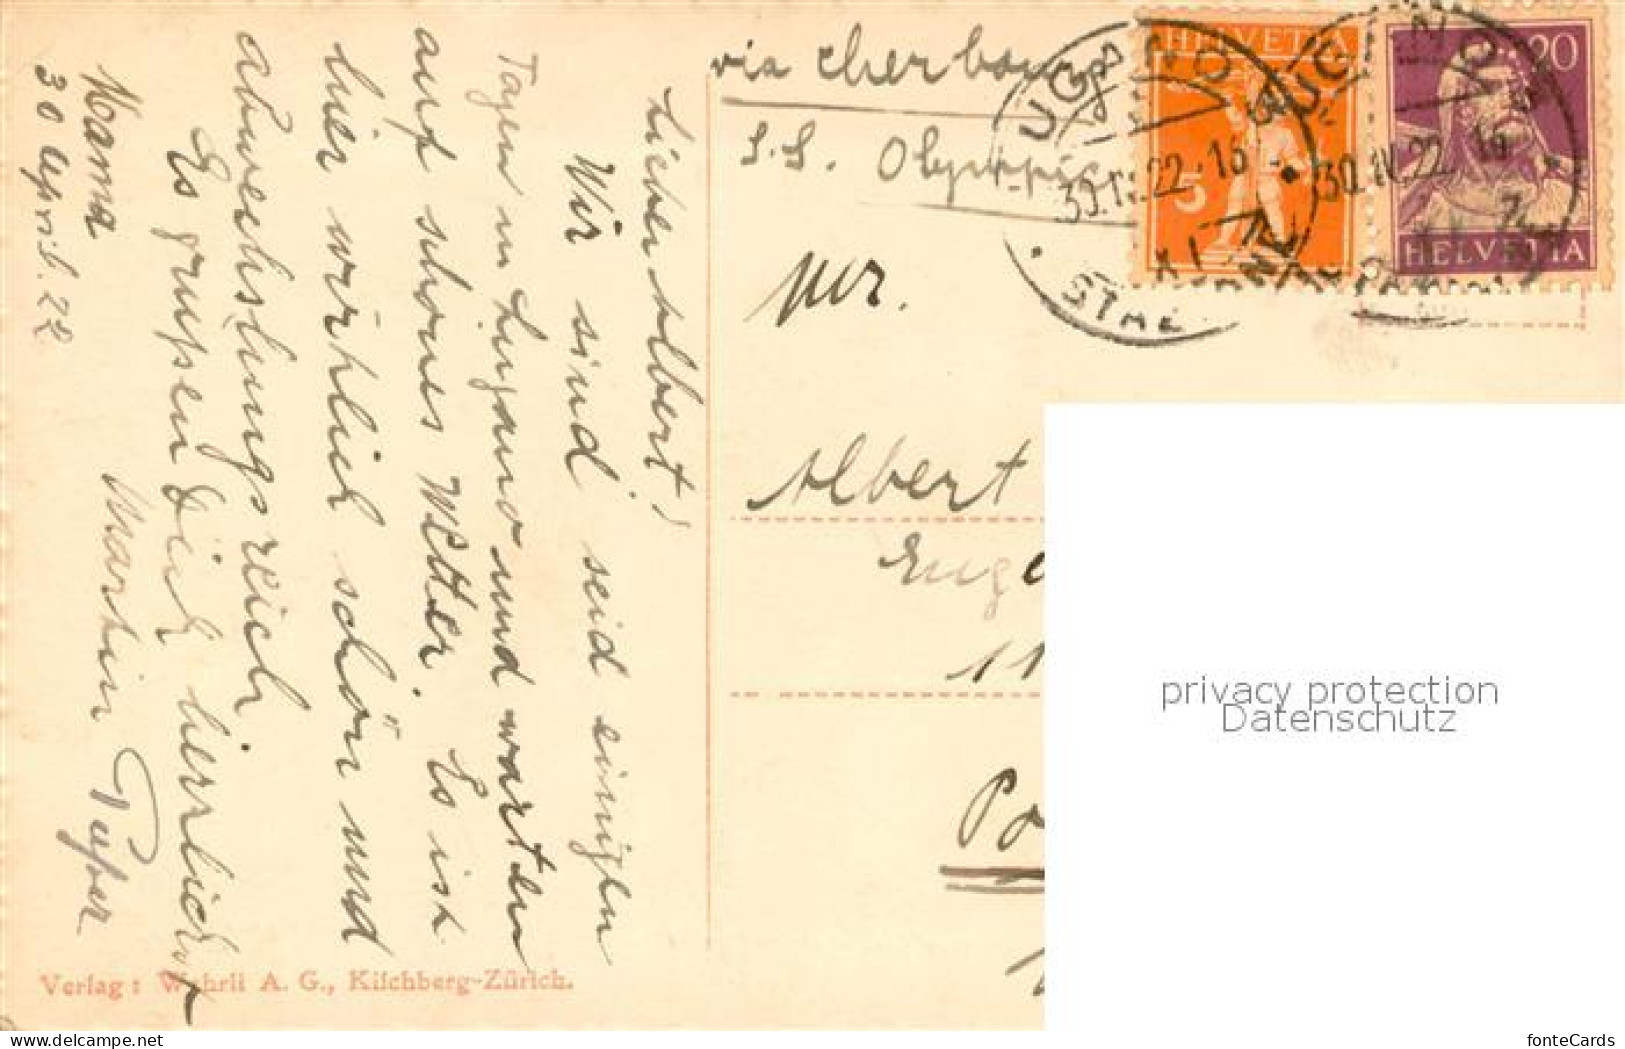 Lieber Albert!
Wir sind seid einigen
Tagen in Lugano und warten
auf schönes Wetter. Es ist
hier wörtlich schön und
abwechslungsreich
Es grüssen Dich herrlichst
Mama Martin Papa
30 April. 22
via Cherbourg
S.S. Olympic
per.
Albert
11
Po
HELVETIA
5
20
HELVETIA
LUGANO
30.IV.22.16
LUGANO
30.IV.22.16
Verlag: Wehrli A. G., Kilchberg-Zürich.
privacy protection
Datenschutz
www.delcampe.net
fonteCards